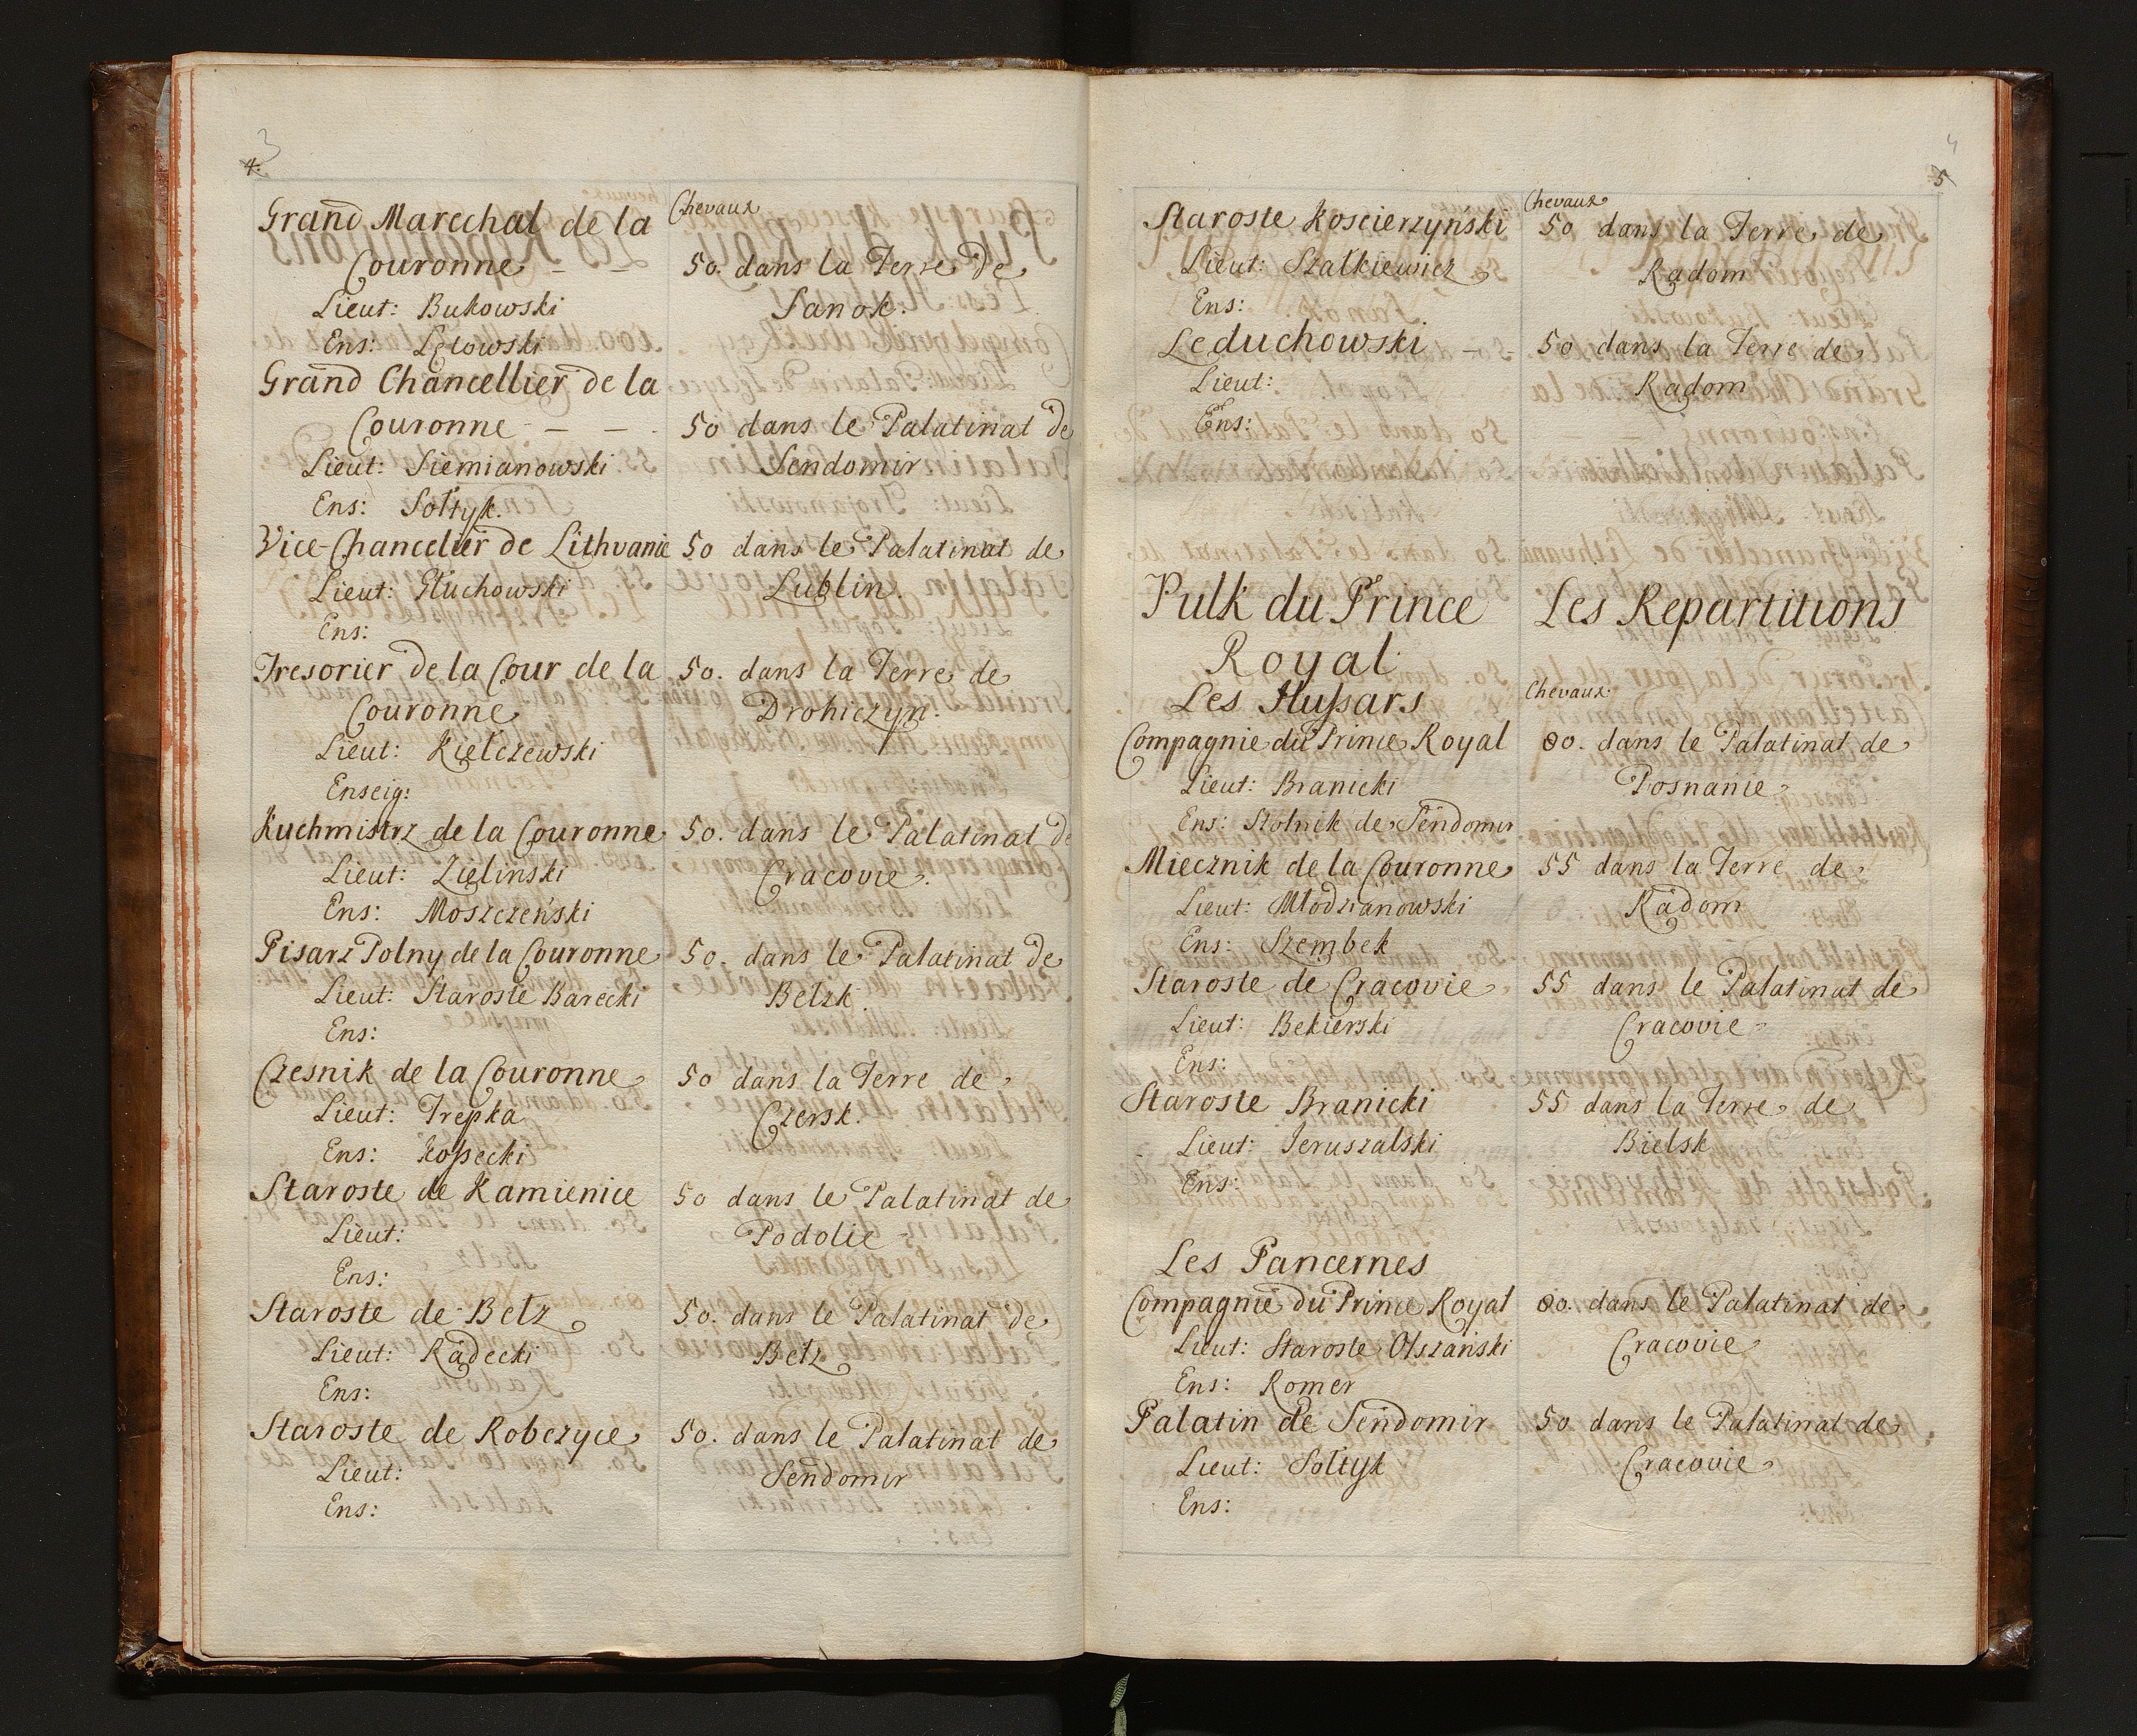 3
4.
Chevaux
Grand Marechal de la
Couronne – – 50. dans la Terre de
Lieut: Bukowski Sanok.
Ens: Lętowski
Grand Chancellier de la
Couronne – – 50 dans le Palatinat de
Lieut: Siemianowski Sendomir
Ens: Sołtyk.
Vice-Chancelier de Lithvanie 50 dans le Palatinat de
Lieut: Głuchowski Lublin.
Ens:
Tresorier de la Cour de la 50. dans la Terre de
Couronne Drohiczyn.
Lieut: Kiełczewski
Enseig:
Kuchmistrz de la Couronne 50. dans le Palatinat de
Lieut: Zielinski Cracovie.
Ens: Moszczeński
Pisarz Polny de la Couronne 50. dans le Palatinat de
Lieut: Staroste Barecki Belzk.
Ens:
Czesnik de la Couronne 50 dans la Terre de
Lieut: Trepka Czersk.
Ens: Kossecki
Staroste de Kamienice 50 dans le Palatinat de
Lieut: Podolie
Ens:
Staroste de Belz 50. dans le Palatinat de
Lieut: Radecki Belz
Ens:
Staroste de Robczyce 50. dans le Palatinat de
Lieut: Sendomir
Ens:
4
5
Chevaux
Staroste Koscierzyński 50 dans la Terre de
Lieut: Szałkiewicz Radom
Ens:
Leduchowski – - 50 dans la Terre de
Lieut: Radom
Ens:
Pulk du Prince Les Repartitions
Royal
Les Hussars Chevaux
Compagnie du Prince Royal 80. dans le Palatinat de
Lieut: Branicki Posnanie
Ens: Stolnik de Sendomir
Miecznik de la Couronne 55 dans la Terre de
Lieut: Młodzianowski Radom
Ens: Szembek
Staroste de Cracovie 55 dans le Palatinat de
Lieut: Bekierski Cracovie
Ens:
Staroste Branicki 55 dans la Terre de
Lieut: Jeruszalski Bielsk
Ens:
Les Pancernes
Compagnie du Prince Royal 80. dans le Palatinat de
Lieut: Staroste Olszański Cracovie
Ens: Romer
Palatin de Sendomir 50 dans le Palatinat de
Lieut: Sołtyk Cracovie
Ens: